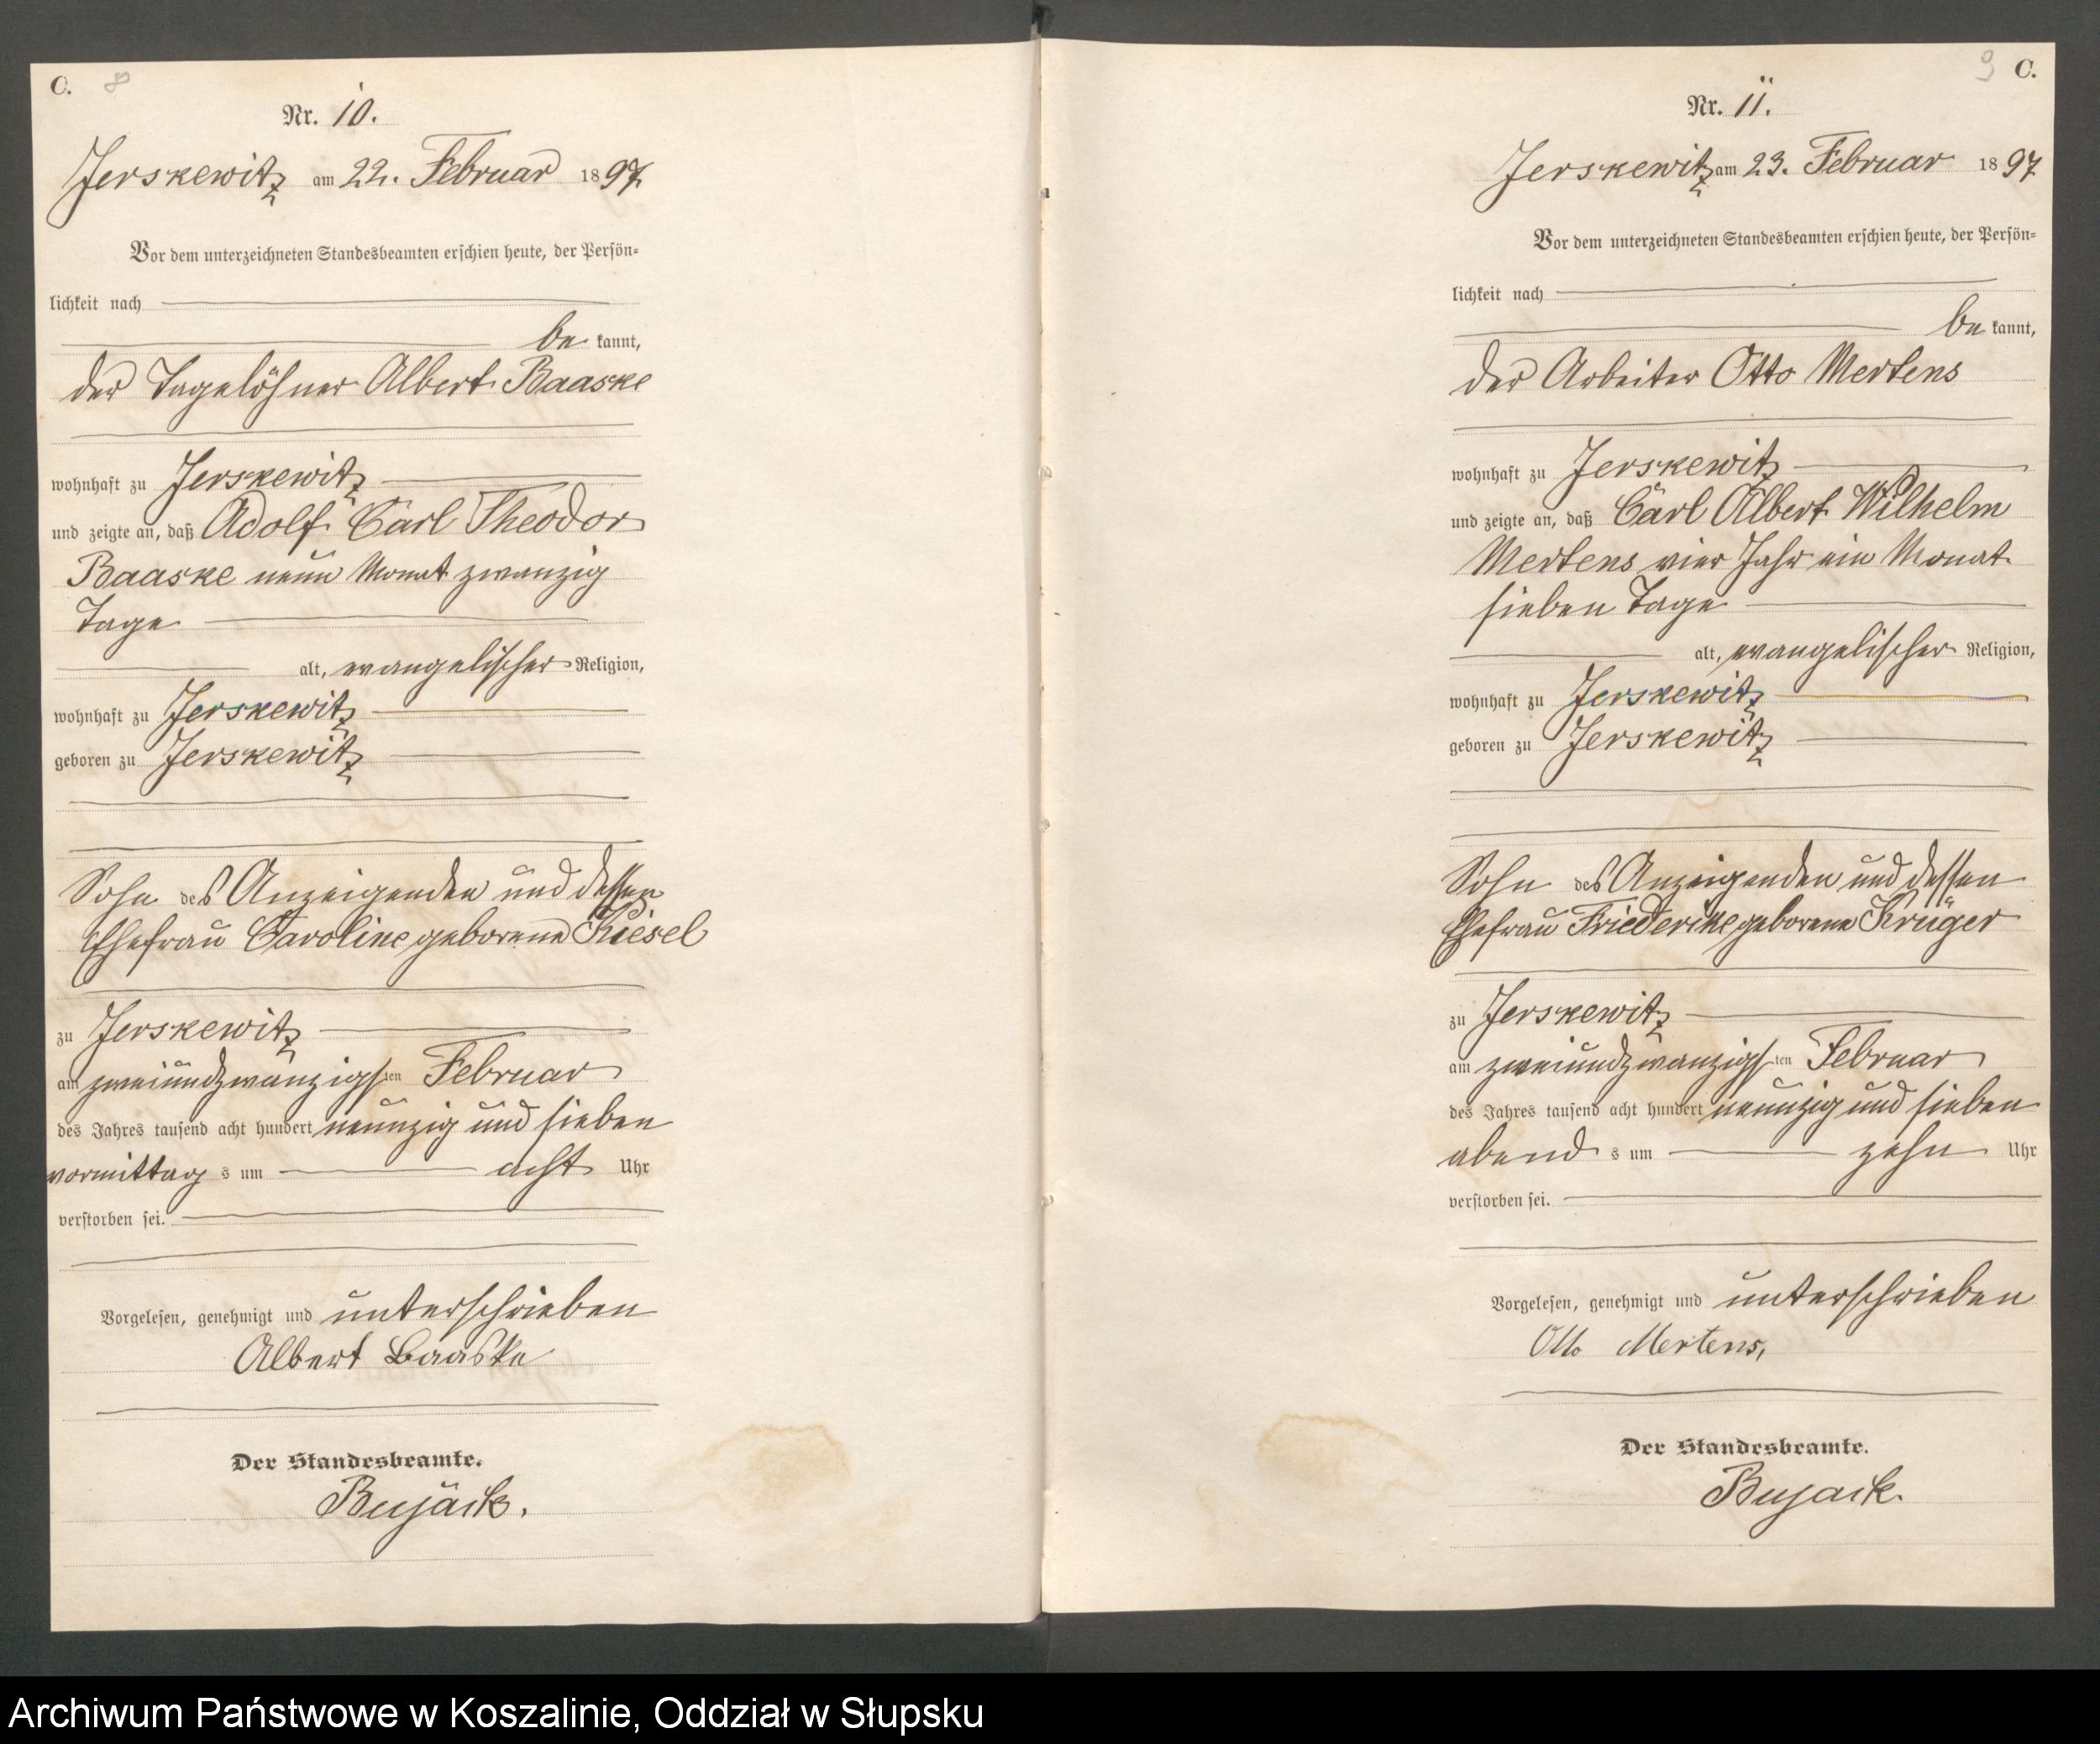 C. 8
Nr. 10.
Jerskewitz am 22. Februar 1897
Vor dem unterzeichneten Standesbeamten erschien heute, der Persön-
lichkeit nach
be kannt,
der Tagelöhner Albert Baaske
wohnhaft zu Jerskewitz
und zeigte an, daß Adolf Carl Theodor
Baaske neun Monat zwanzig
Tage
alt, evangelischer Religion,
wohnhaft zu Jerskewitz
geboren zu Jerskewitz
Sohn des Anzeigenden und dessen
Ehefrau Caroline geborene Kiesel
zu Jerskewitz
am zweiundzwanzigsten Februar
des Jahres tausend acht hundert neunzig und sieben
vormittag s um acht Uhr
verstorben sei.
Vorgelesen, genehmigt und unterschrieben
Albert Baaske
Der Standesbeamte.
Bujack.
9 C.
Nr. 11.
Jerskewitz am 23. Februar 1897
Vor dem unterzeichneten Standesbeamten erschien heute, der Persön-
lichkeit nach
be kannt,
der Arbeiter Otto Mertens
wohnhaft zu Jerskewitz
und zeigte an, daß Carl Albert Wilhelm
Mertens vier Jahr ein Monat
sieben Tage
alt, evangelischer Religion,
wohnhaft zu Jerskewitz
geboren zu Jerskewitz
Sohn des Anzeigenden und dessen
Ehefrau Friederike geborene Krüger
zu Jerskewitz
am zweiundzwanzigsten Februar
des Jahres tausend acht hundert neunzig und sieben
abend s um zehn Uhr
verstorben sei.
Vorgelesen, genehmigt und unterschrieben
Otto Mertens,
Der Standesbeamte.
Bujack.
Archiwum Państwowe w Koszalinie, Oddział w Słupsku